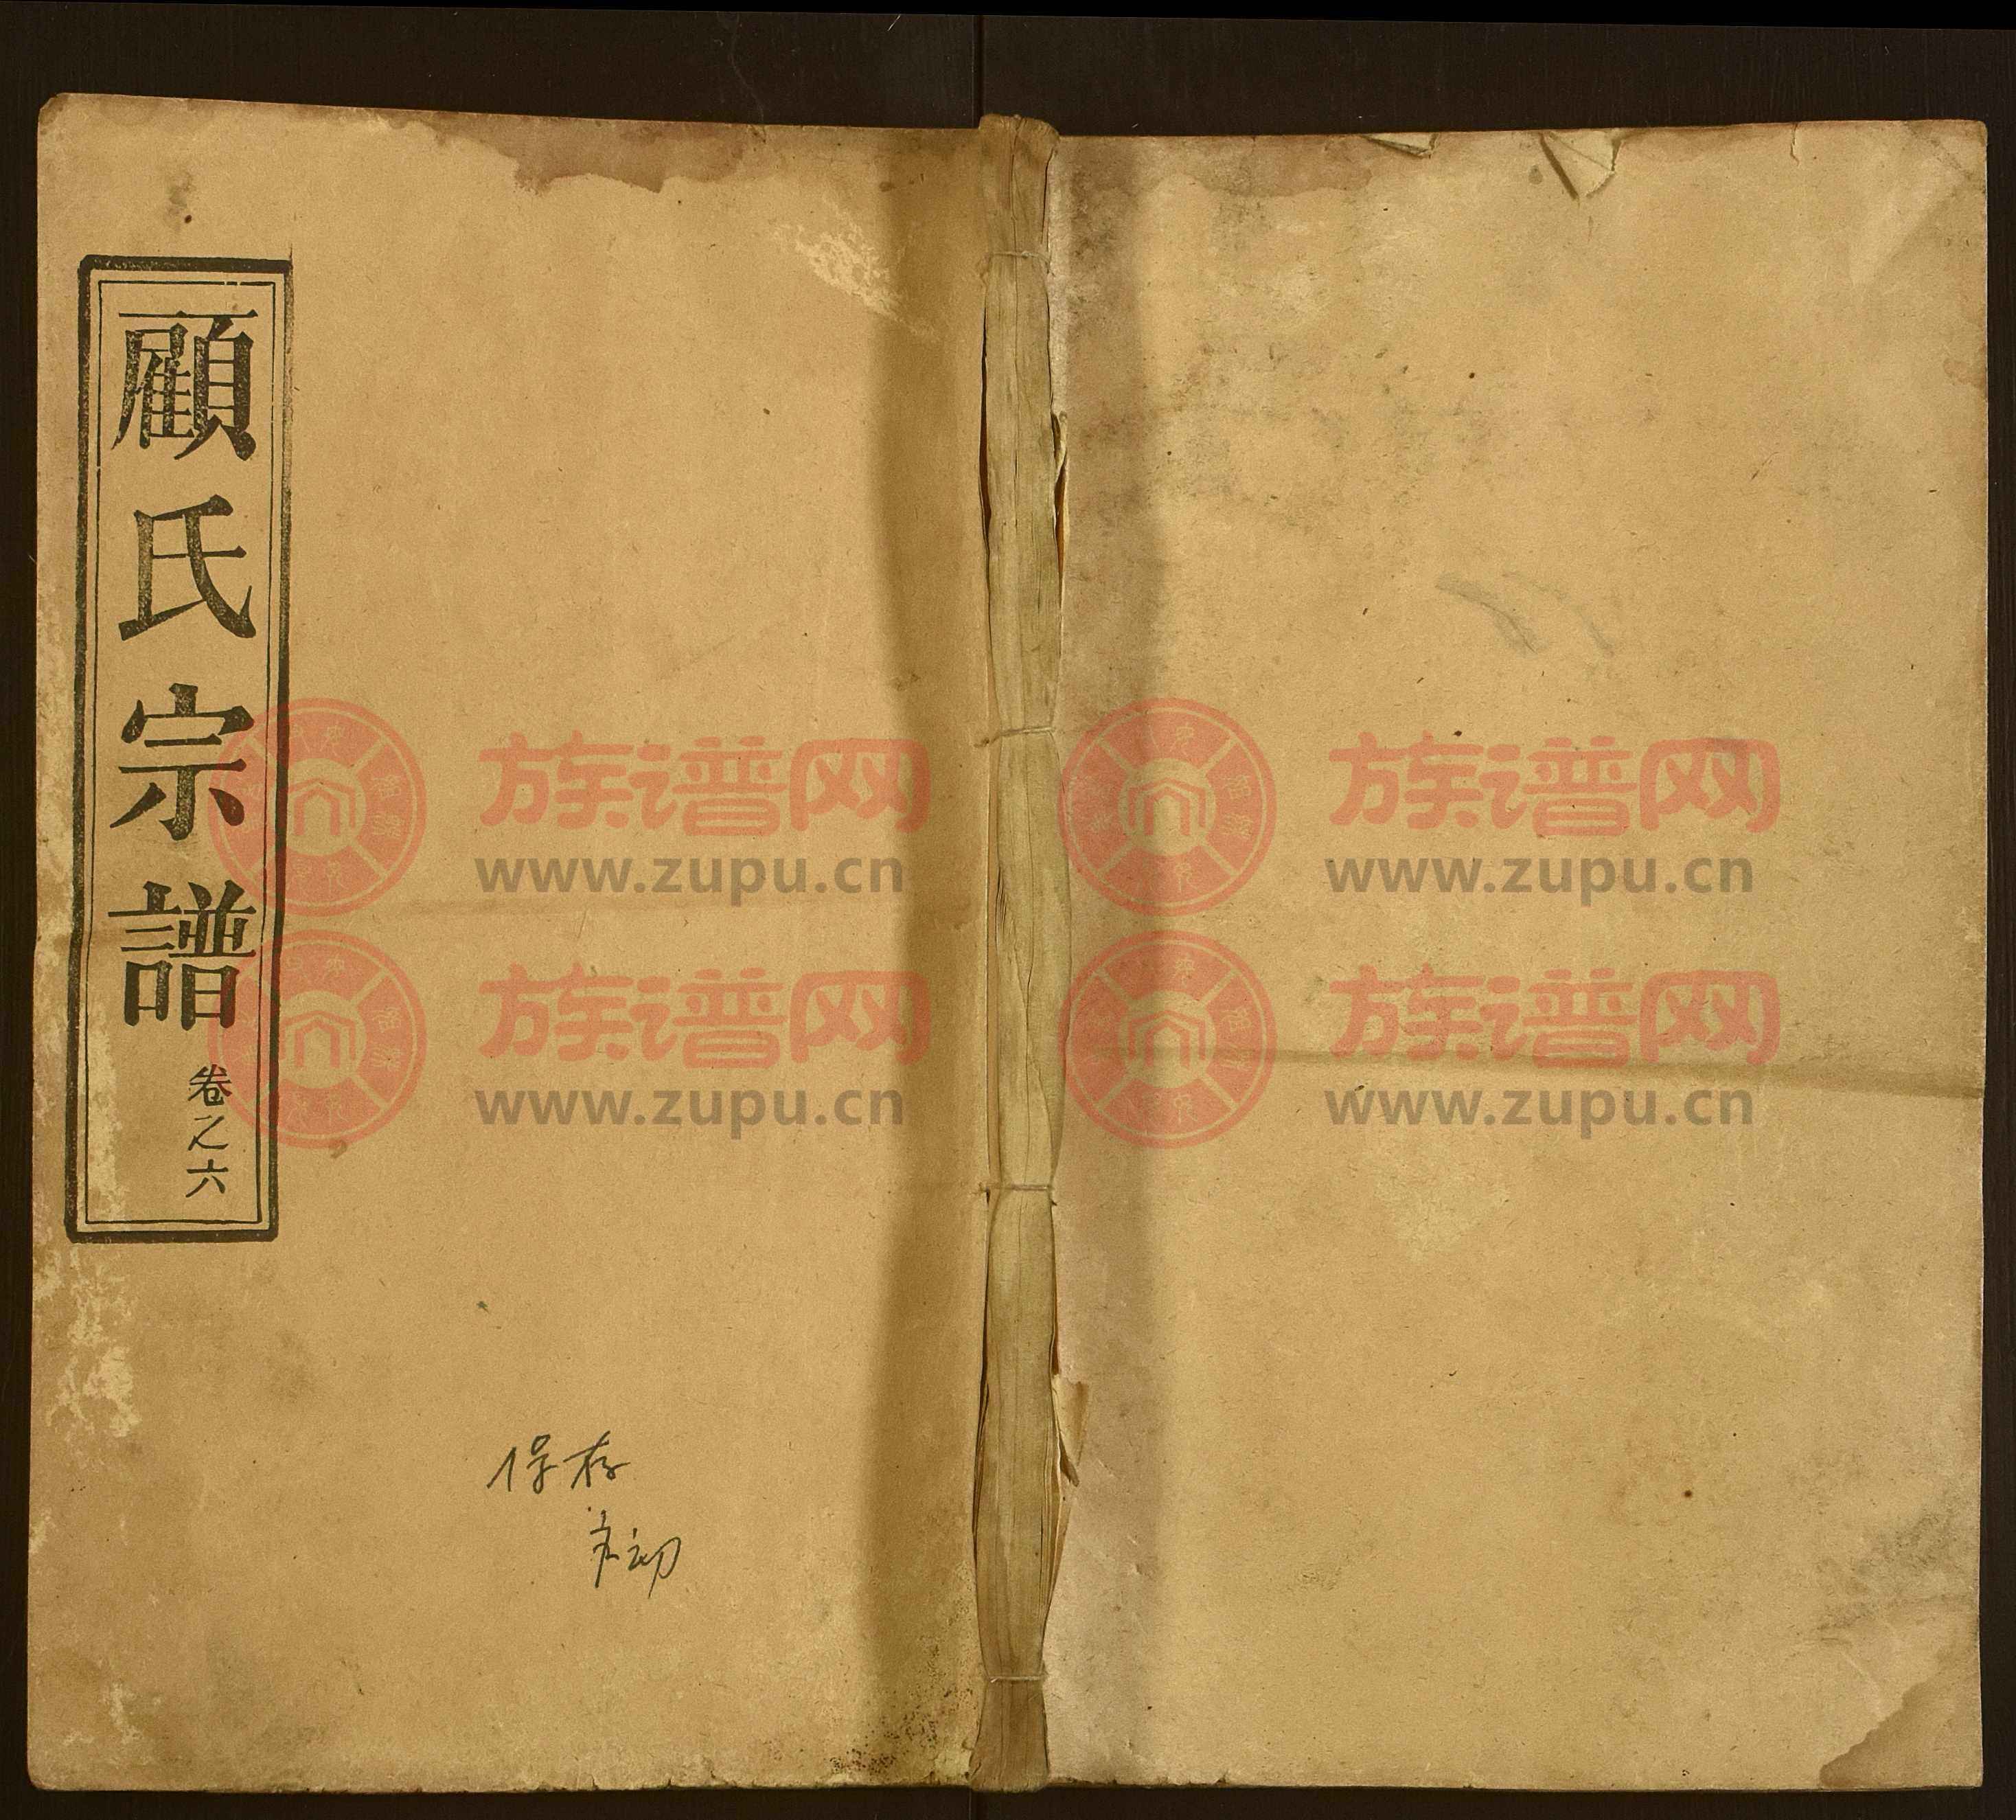 顧氏宗譜
卷之六
保存
族谱网
www.zupu.cn
族谱网
www.zupu.cn
族谱网
www.zupu.cn
族谱网
www.zupu.cn